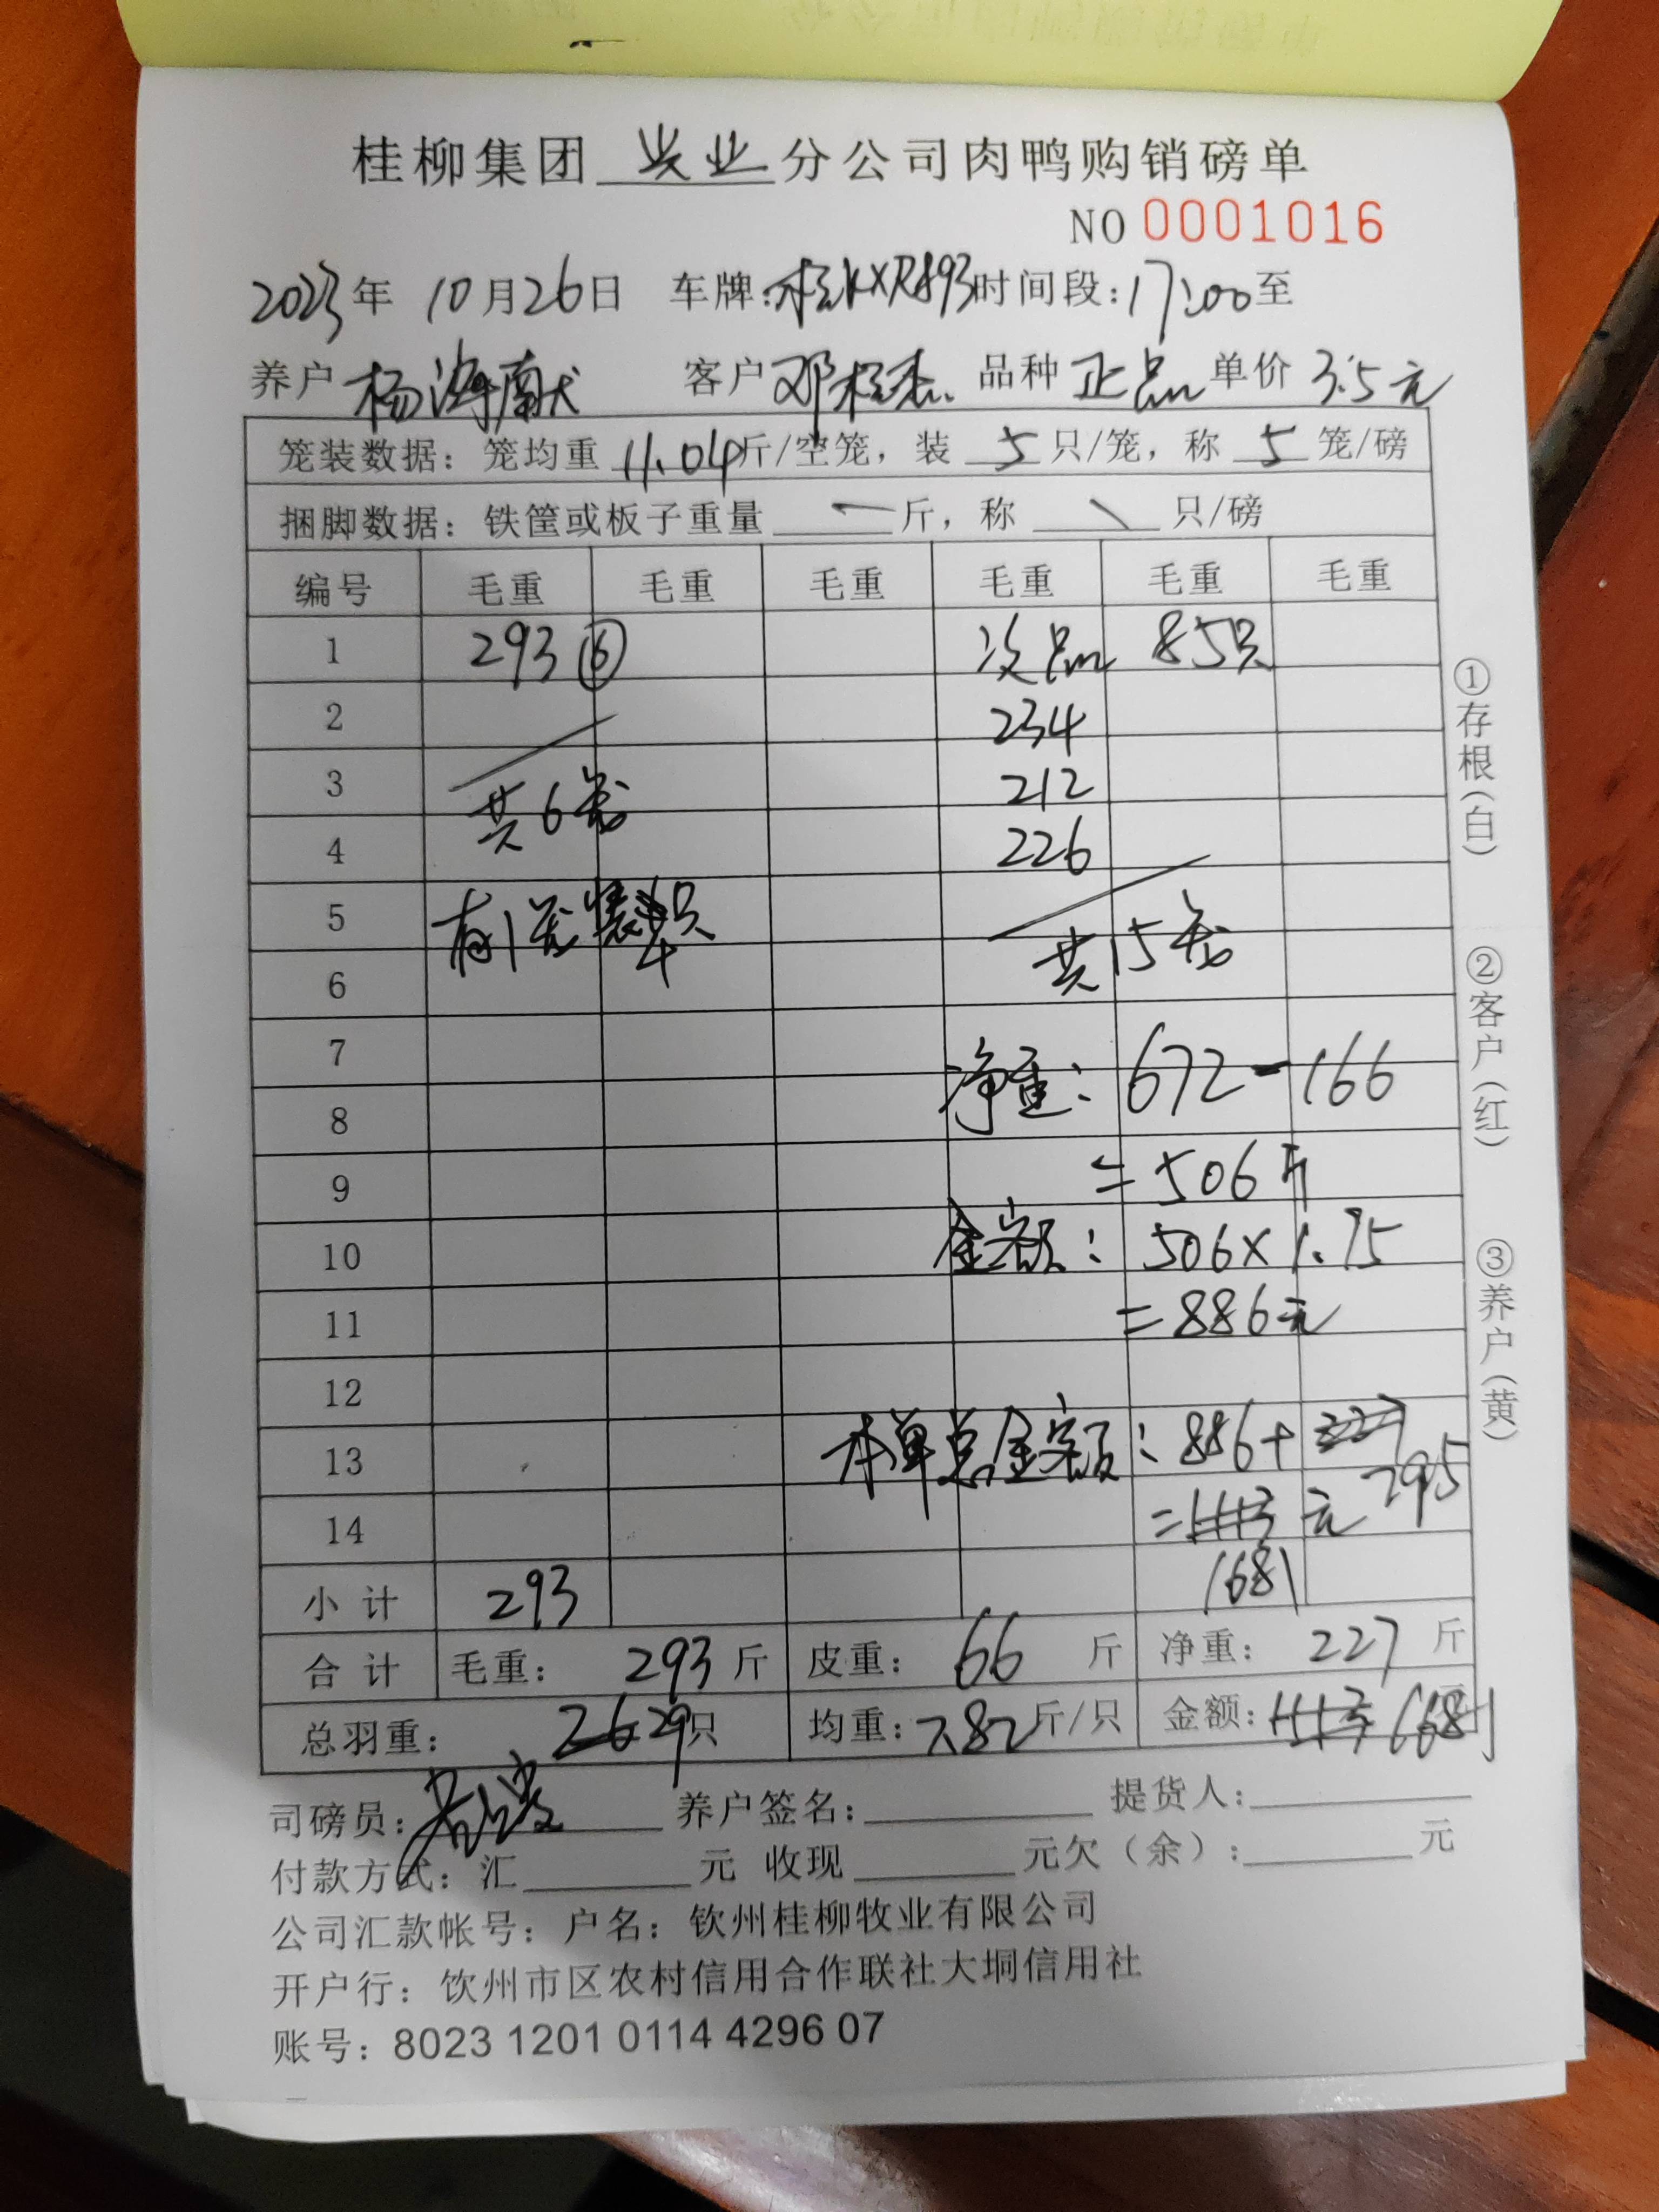 桂柳集团 兴业 分公司肉鸭购销磅单
NO 0001016
2023年 10月26日 车牌:桂KXR893 时间段:17:00至
养户 杨海献 客户 邓桂杰 品种 正品 单价 3.5元
笼装数据:笼均重 11.04斤/空笼,装 5 只/笼,称 5 笼/磅
捆脚数据:铁筐或板子重量 斤,称 只/磅
编号 毛重 毛重 毛重 毛重 毛重 毛重
1 293 ⑥ 次品 85只
2 234
3 共6笼 212
4 226
5 有1笼装4只
6 共15笼
7 净重: 672-166
8
9 =506斤
10 金额: 506×1.75
11 =886元
12
13 本单总金额: 886+ 795
14 = 元
1681
小计 293
合计 毛重: 293 斤 皮重: 66 斤 净重: 227 斤
总羽重: 29只 均重:7.82斤/只 金额: 1681
司磅员: 养户签名: 提货人:
付款方式:汇 元 收现 元欠(余): 元
公司汇款帐号:户名:钦州桂柳牧业有限公司
开户行:钦州市区农村信用合作联社大垌信用社
账号:8023 1201 0114 4296 07
①存根(白)
②客户(红)
③养户(黄)